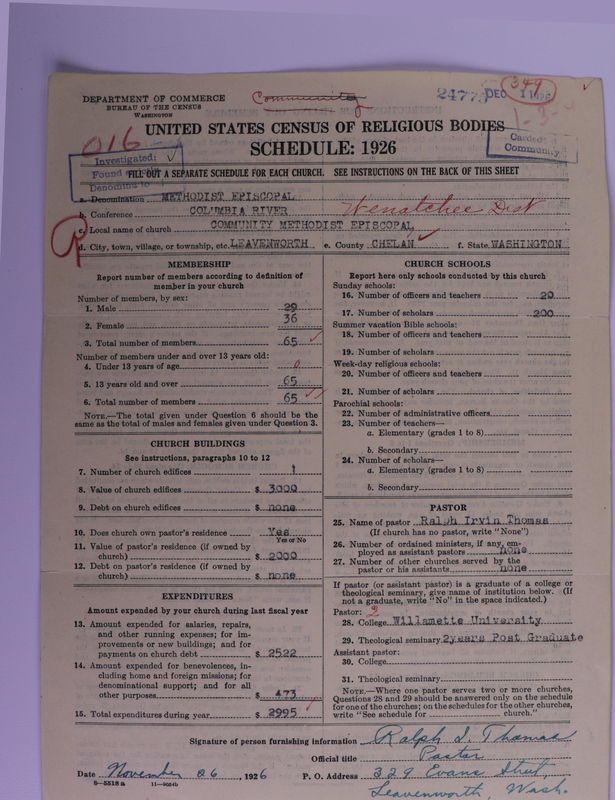 DEPARTMENT OF COMMERCE
BUREAU OF THE CENSUS
WASHINGTON
Community
2477
DEC
349
016
UNITED STATES CENSUS OF RELIGIOUS BODIES
SCHEDULE: 1926
Investigated:
Found
Denomin
Carded:
Community
FILL OUT A SEPARATE SCHEDULE FOR EACH CHURCH. SEE INSTRUCTIONS ON THE BACK OF THIS SHEET
a. Denomination METHODIST EPISCOPAL
b. Conference COLUMBIA RIVER Wenatchee Dist
c. Local name of church COMMUNITY METHODIST EPISCOPAL
d. City, town, village, or township, etc. LEAVENWORTH e. County CHELAN f. State WASHINGTON
MEMBERSHIP
Report number of members according to definition of
member in your church
Number of members, by sex:
1. Male 29
2. Female 36
3. Total number of members 65
Number of members under and over 13 years old:
4. Under 13 years of age 0
5. 13 years old and over 65
6. Total number of members 65
NOTE.—The total given under Question 6 should be the
same as the total of males and females given under Question 3.
CHURCH BUILDINGS
See instructions, paragraphs 10 to 12
7. Number of church edifices 1
8. Value of church edifices $ 3000
9. Debt on church edifices $ none
10. Does church own pastor's residence Yes
Yes or No
11. Value of pastor's residence (if owned by
church) $ 2000
12. Debt on pastor's residence (if owned by
church) $ none
EXPENDITURES
Amount expended by your church during last fiscal year
13. Amount expended for salaries, repairs,
and other running expenses; for im-
provements or new buildings; and for
payments on church debt $ 2522
14. Amount expended for benevolences, in-
cluding home and foreign missions; for
denominational support; and for all
other purposes $ 473
15. Total expenditures during year $ 2995
CHURCH SCHOOLS
Report here only schools conducted by this church
Sunday schools:
16. Number of officers and teachers 20
17. Number of scholars 200
Summer vacation Bible schools:
18. Number of officers and teachers
19. Number of scholars
Week-day religious schools:
20. Number of officers and teachers
21. Number of scholars
Parochial schools:
22. Number of administrative officers
23. Number of teachers—
a. Elementary (grades 1 to 8)
b. Secondary
24. Number of scholars—
a. Elementary (grades 1 to 8)
b. Secondary
PASTOR
25. Name of pastor Ralph Irvin Thomas
(If church has no pastor, write "None")
26. Number of ordained ministers, if any, em-
ployed as assistant pastors none
27. Number of other churches served by the
pastor or his assistants none
If pastor (or assistant pastor) is a graduate of a college or
theological seminary, give name of institution below. (If
not a graduate, write "No" in the space indicated.)
Pastor: 2
28. College Willamette University
29. Theological seminary 2years Post Graduate
Assistant pastor:
30. College
31. Theological seminary
NOTE.—Where one pastor serves two or more churches,
Questions 28 and 29 should be answered only on the schedule
for one of the churches; on the schedules for the other churches,
write "See schedule for church."
Signature of person furnishing information Ralph I. Thomas
Official title Pastor
Date November 26, 1926 P. O. Address 329 Evans Street,
8—5518a 11—9054b Leavenworth, Wash.